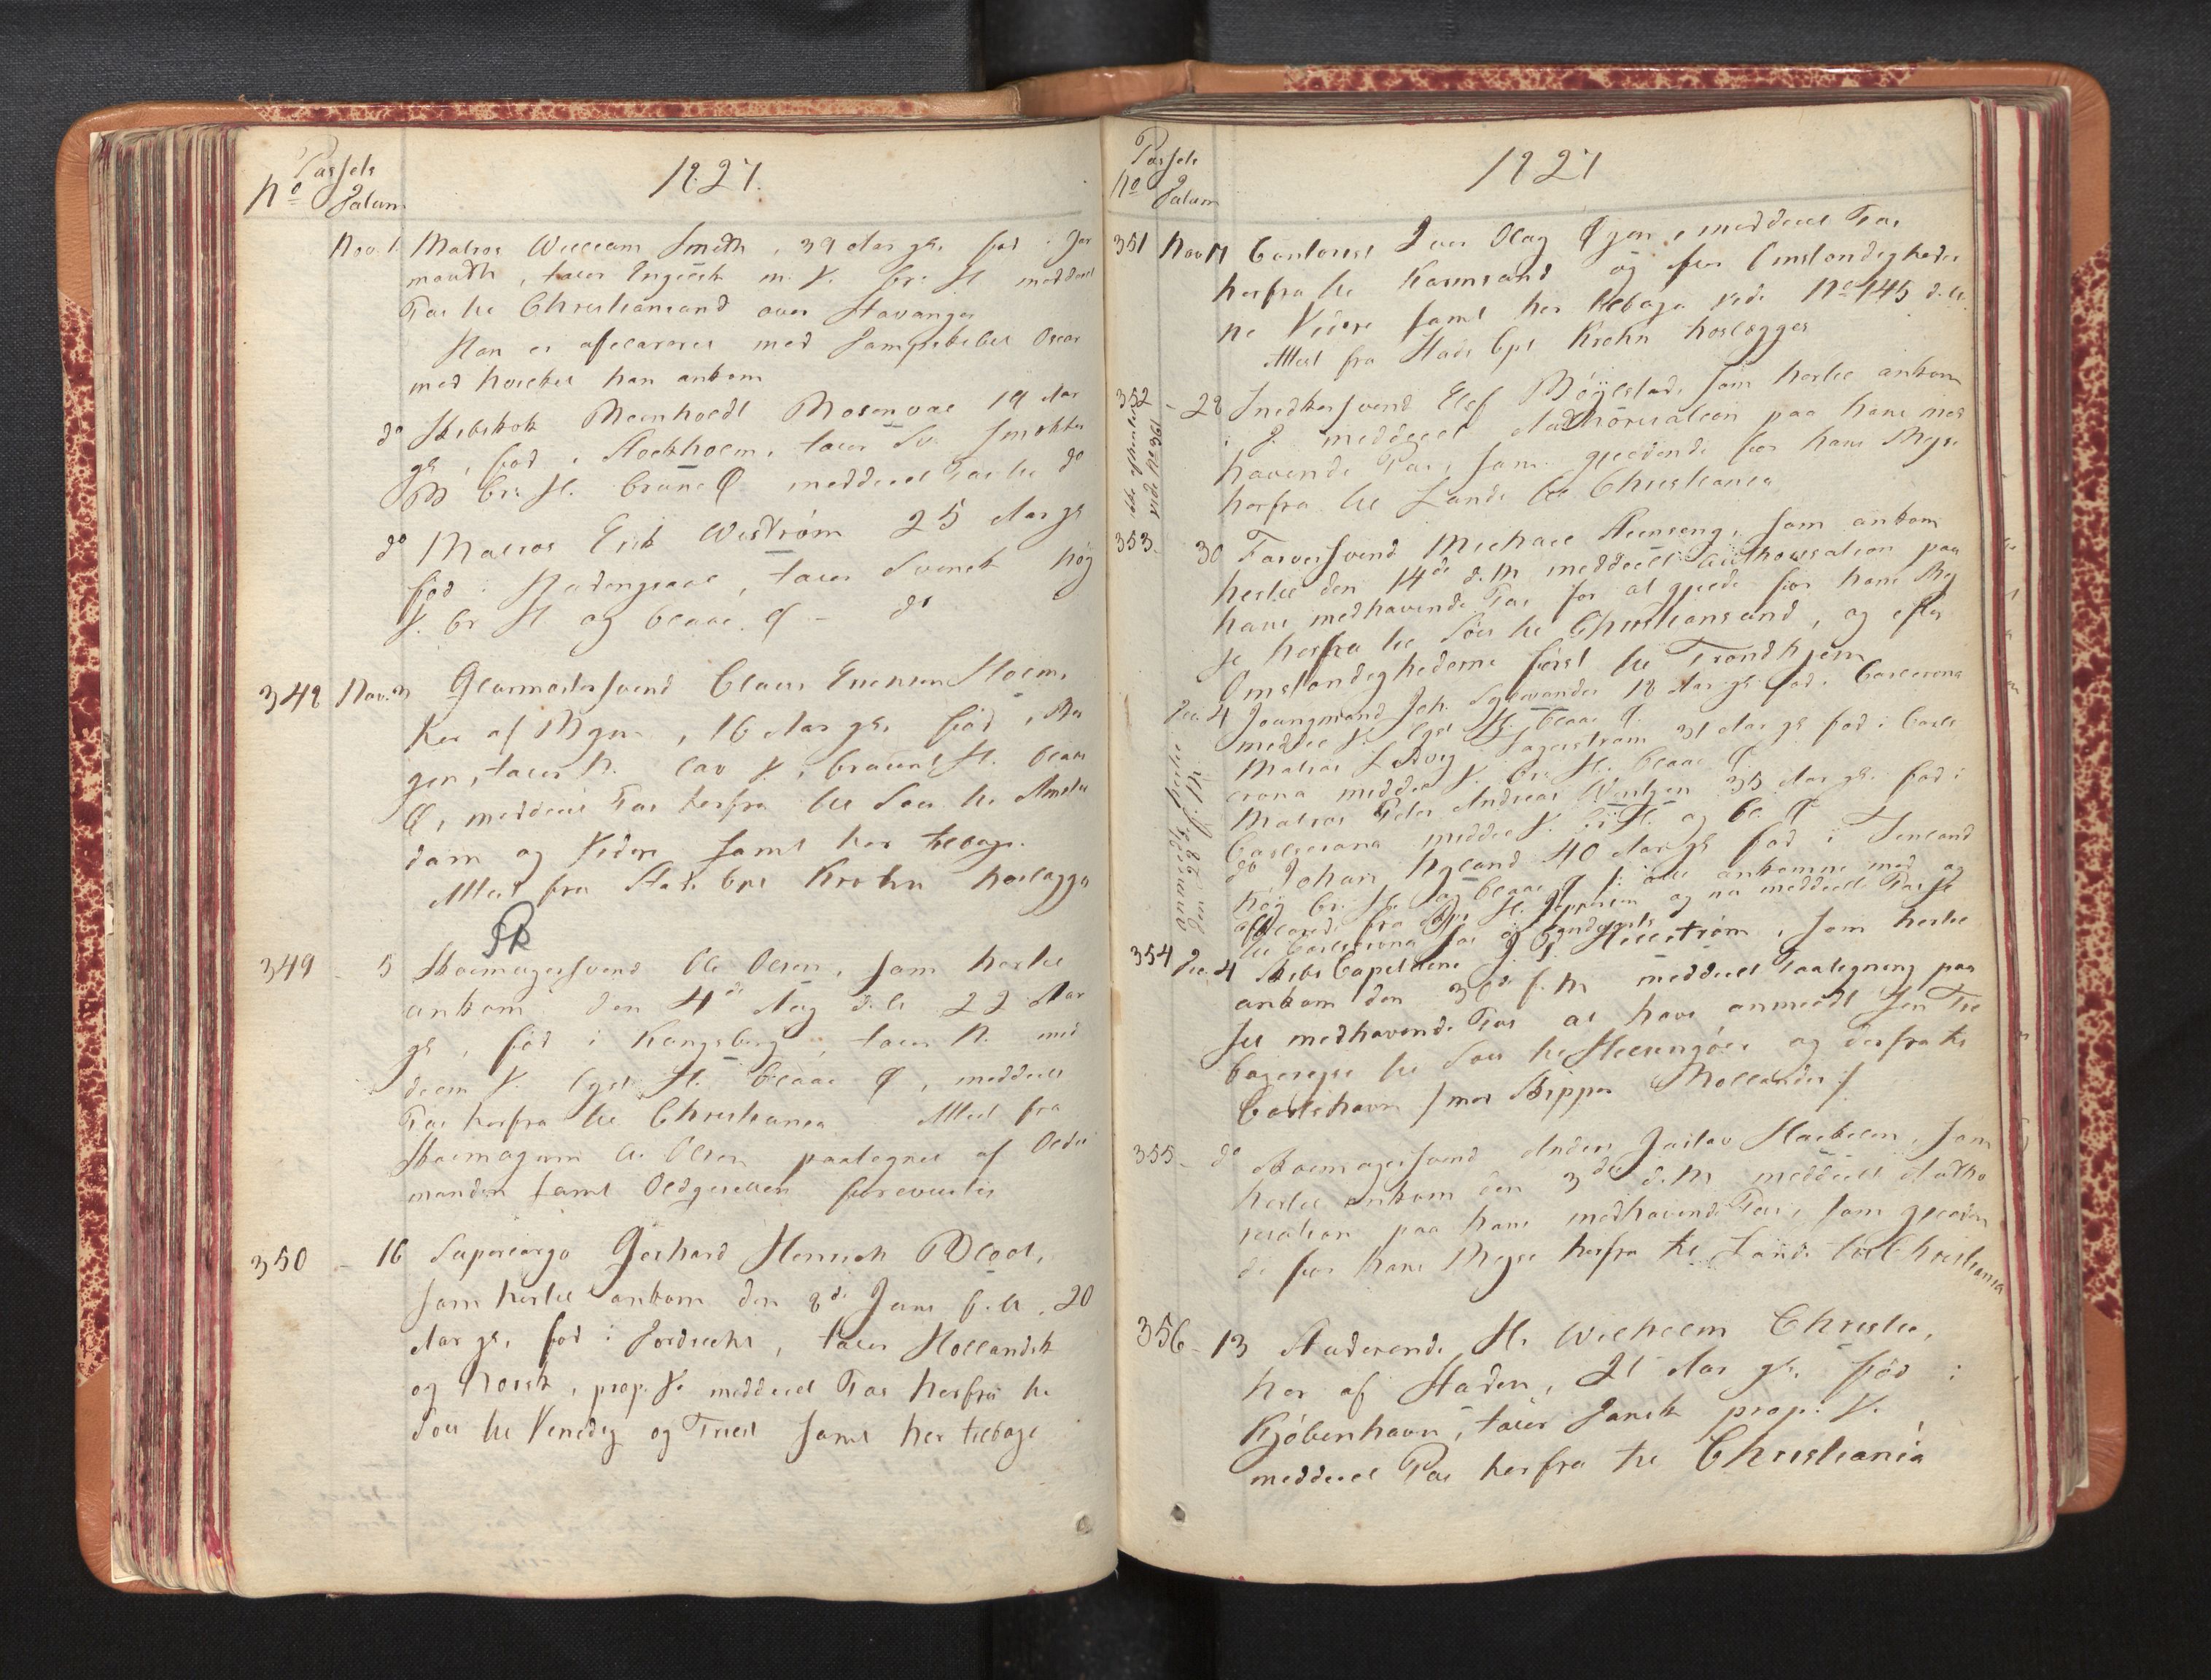 Passets
No Datum
1827.
Nov. 1. Matros William Smith, 39 Aar gl. fød i Jar
mouth, taler Engelsk m. V. br. H. meddeelt
Pas til Christiansand over Stavanger
Han er afclareret med Dampskibet Oscar
med hvilket han ankom
do Skibskok Meinholdt Rosenvae 19 Aar
gl, fød i Stockholm, taler Sv. Smekker
V br. H. brune Ø meddeelt Pas til do
do Matros Erik Wiström 25 Aar gl
fød i Hudengsael, taler Svensk høy
V. br H. og blaae Ø - do
348 Nov. 3 Glarmestersvend Claus Enensen Holm
her af Byen, 16 Aar gl. fød i Ber
gen, taler N. lav V, bruunt H. blaae
Ø, meddeelt Pas herfra til Søes til Amster
dam og Videre samt her tilbage.
Attest fra Stads Cpt Krohn hoslagges
349 - 5 Skomagersvend Ole Olsen, som hertil
ankom den 4de Aug d. A. 22 Aar
gl, fød i Kongsberg, taler N. mid
delm V. lyst H. blaae Ø, meddeelt
Pas herfra til Christiania Attest fra
Skomagerm. Ole Olsen paategnet af Older
manden samt Oldgesellen foreviistes
350 - 16 Supercargo Gerhard Henrich Bloot,
som hertil ankom den 8de Juni d. A. 20
Aar gl, fød i Dordrecht, taler Hollandsk
og Norsk, prop. V. meddeelt Pas herfra til
Søes til Venedig og Triest samt her tilbage
Passets
No Datum
1827
351 Nov 17 Contorist Iver Olay Øyen, meddeelt Pas
herfra til Karmsund og fler Omstændigheder
ne Videre samt her tilbage vide No 145 d. A.
Attest fra Stads Cpt Krohn hoslægges
352 - 28 Snedkersvend Elef Bøyestad, som hertil ankom
meddeelt Authorisation paa hans med
havende Pas, som gjeldende for hans Reyse
herfra til Lands til Christiania
ikke afhentet
vide No 361
353. 30 Farversvend Michael Steenseng, som ankom
hertil den 14de d. M. meddeelt Authorisation paa
hans medhavende Pas for at gjelde for hans Rey
se herfra til Søes til Christiansand, og efter
Omstændighederne først til Trondhjem
Dec. 4 Joungmand Joh. Sylvander 18 Aar gl. fød i Carlscrona
middel V. lyst H. blaae Ø.
Matros Ludvig Sagerstrøm 31 Aar gl fød i Carls
crona middel V. br. H. blaae Ø.
Matros Peter Andreas Wentzen 35 Aar gl. fød i
Carlscrona middel V. br. H. og bl. Ø
do Johan Nyland 40 Aar gl fød i Finland
høy br. H. og blaae Ø alle ankomne med og
og nu meddeelt Pas
til Carlscrona
anmeldt hertil
den 28 f. M.
354 Dec. 4 Skibs Capitaine J. P. Hillström, som hertil
ankom den 30de f. M. meddeelt Paategning paa
sit medhavende Pas at have anmeldt sin Til
bagereyse til Søes til Helsingöer og derfra til
Carlshavn / med Skipper Mollander /
355 - do Skomagersvend Anders Gustav Hackelin, som
hertil ankom den 3de d. M. meddeelt Autho
risation paa hans medhavende Pas, som gjelden
de for hans Reyse herfra til Lands til Christiania
356 - 13 Studerende H. Wilhelm Christie,
her af Staden, 21 Aar gl. fød i
Kjøbenhavn, taler Dansk prop. V.
meddeelt Pas herfra til Christiania